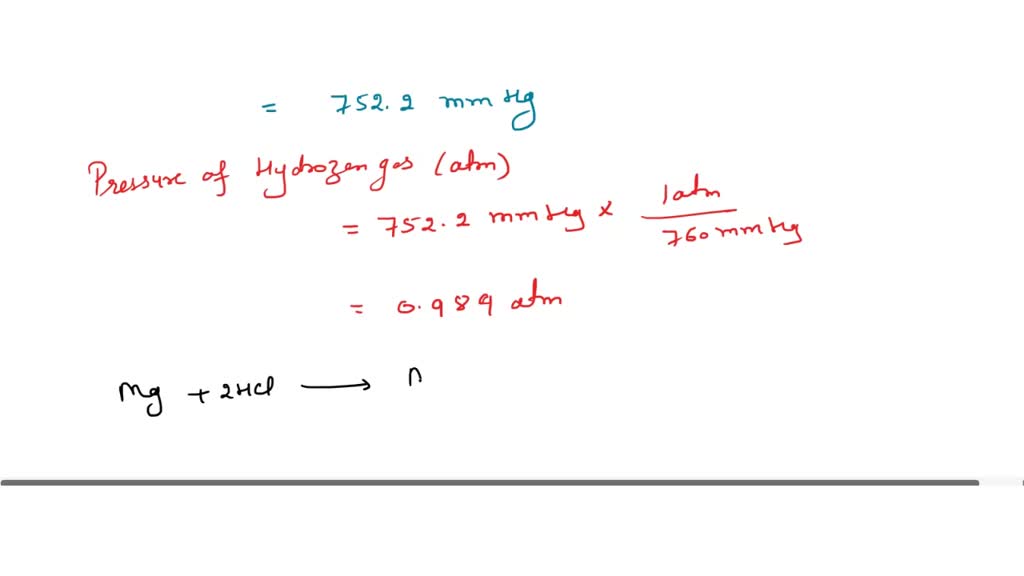 = 752.2 mm Hg
Pressure of Hydrozen gas (atm)
= 752.2 mm Hg × 1 atm / 760 mm Hg
= 0.989 atm
Mg + 2HCl ⟶ n